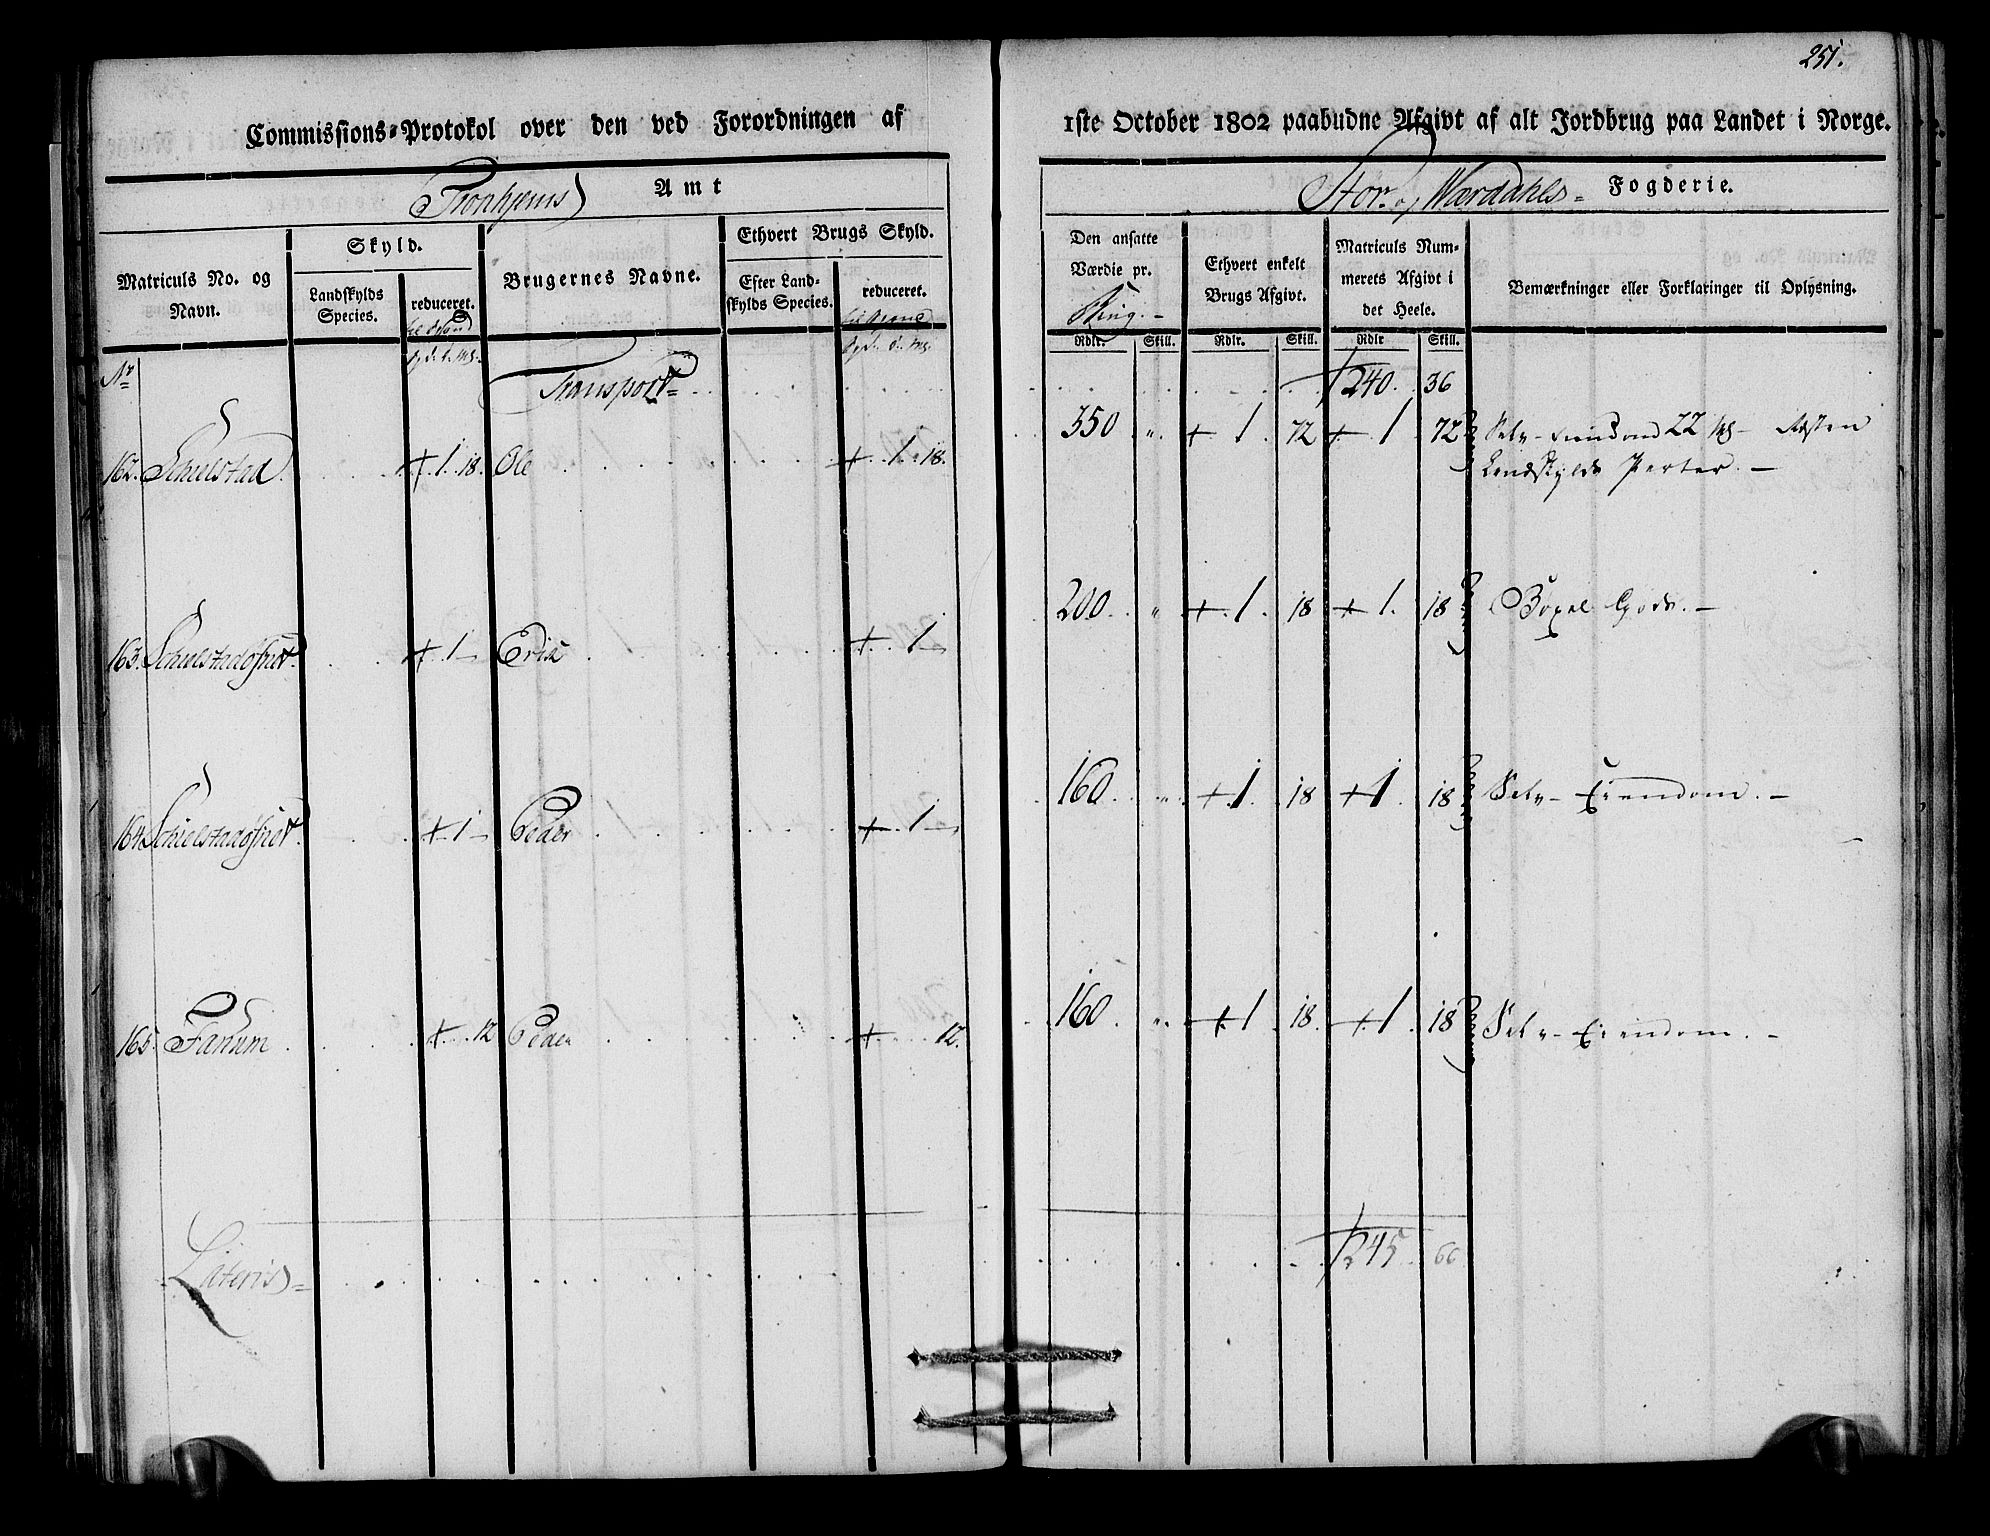 251.
Commissions-Protokol over den ved Forordningen af 1ste October 1802 paabudne Afgivt af alt Jordbrug paa Landet i Norge.
Tronhjems Amt
Stør. og Wærdahls= Fogderie.
Matriculs No. og Navn.
Skyld.
Landskylds Species.
reduceret.
Brugernes Navne.
Ethvert Brugs Skyld.
Efter Landskylds Species.
reduceret.
Den ansatte Værdie pr.
Ethvert enkelt Brugs Afgivt.
Matriculs Nummerets Afgivt i det Heele.
Bemærkninger eller Forklaringer til Oplysning.
Rdlr. Skill. Rdlr. Skill. Rdlr Skill.
No
Transport= 240. 36
162. Schielstad 1. 18. Ole 1. 18. 350 " 1. 72 1 72 Selv-Eiendom 22 Resten
Landskylds Perter. -
163. 1 - Erik 1 - 200. " 1. 18 1. 18 Bøxel Gods. -
164. 1 - Peder 1 - 160. " 1. 18 1. 18 Selv-Eiendom. -
165. Fanum 12 Peder 12. 160 " 1. 18. 1. 18 Selv-Eiendom. -
Lateris= 245. 66